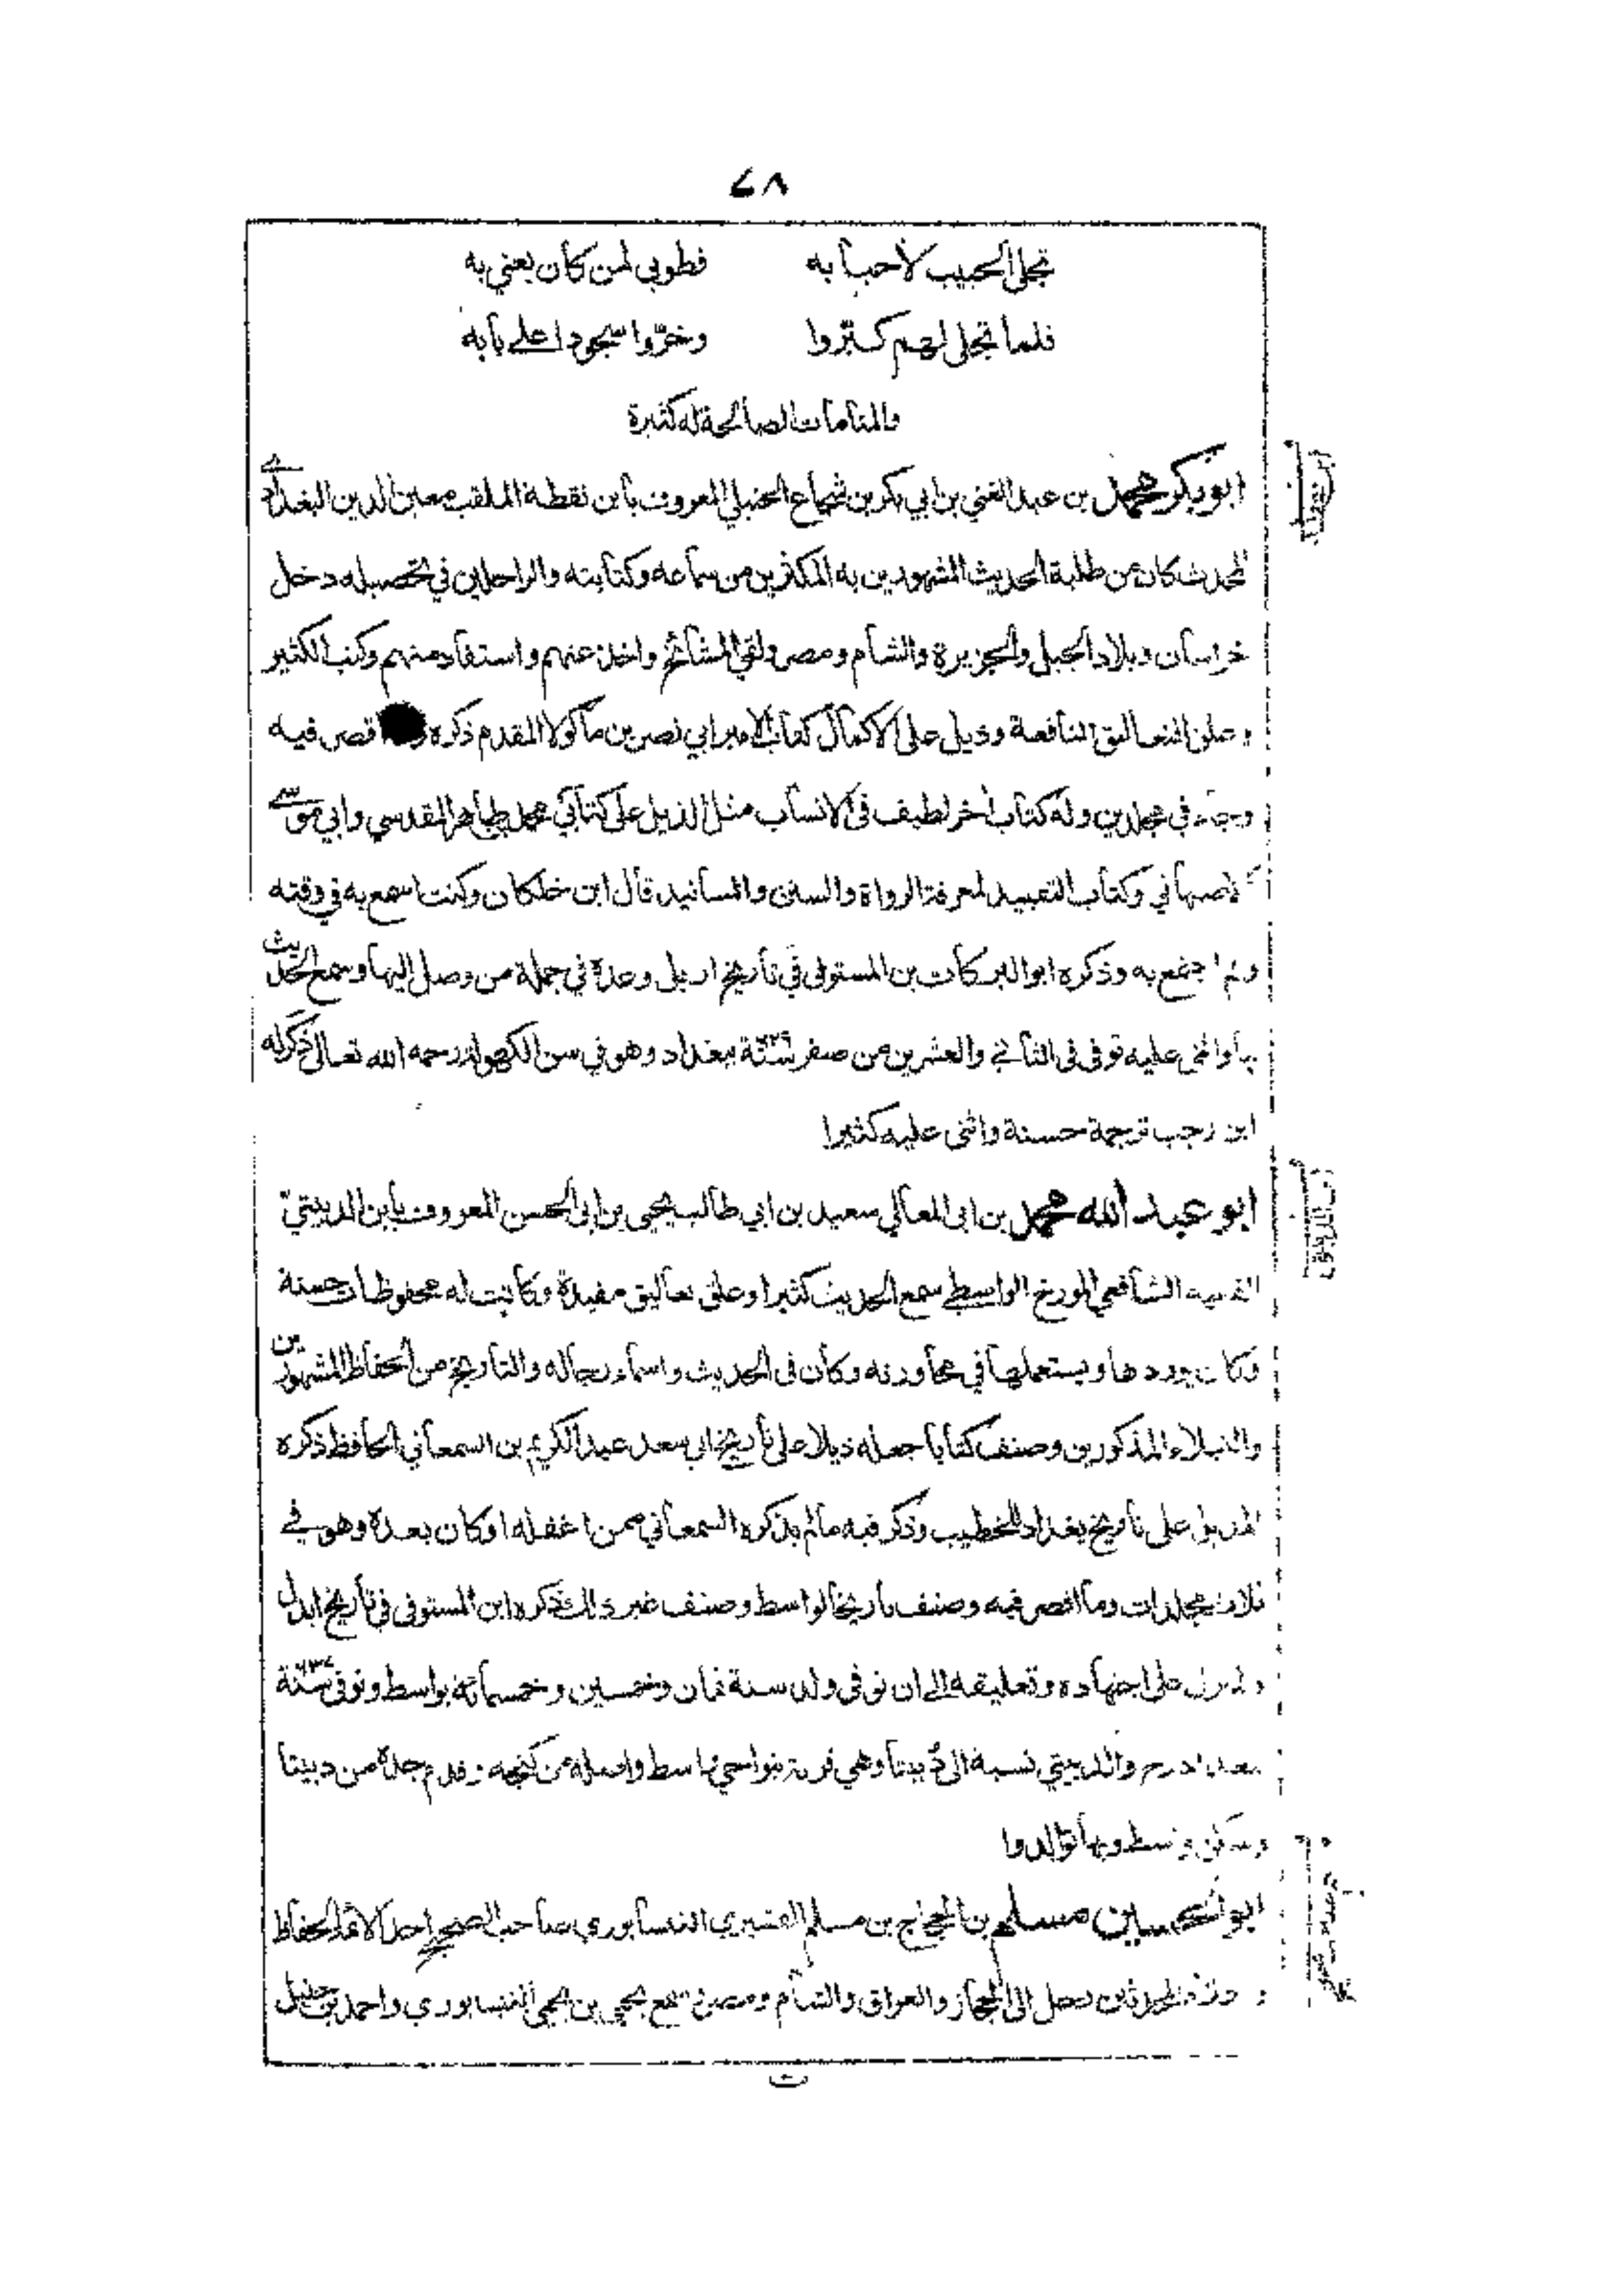 ٤٨
تجلى الحبيب لأحبابه فطوبى لمن كان يعني به
فلما تجلى لهم كبّروا وخرّوا سجودا على بابه
والمنامات الصالحة له كثيرة
ابو بكر محمد بن عبد الغني بن ابي بكر بن شجاع الحنبلي المعروف بابن نقطة الملقب معين الدين البغدادي
المحدث كان من طلبة الحديث المشهورين به المكثرين من سماعه وكتابته والراحلين في تحصيله دخل
خراسان وبلاد الجبل والجزيرة والشام ومصر ولقي المشائخ واخذ عنهم واستفاد منهم وكتب الكثير
وعلق التعاليق النافعة وذيل على الاكمال كتاب الامير ابي نصر بن ماكولا المقدم ذكره اقصر فيه
وجاء في مجلدين وله كتاب اخر لطيف في الانساب مثل الذيل على كتابي محمد بن طاهر المقدسي وابي موسى
الاصبهاني وكتاب التقييد لمعرفة الرواة والسنن والمسانيد قال ابن خلكان وكنت اسمع به في وقته
ولم اجتمع به وذكره ابو البركات بن المستوفى في تاريخ اربل وعدة في جملة من وصل اليها وسمع الحديث
بها واثنى عليه توفى فى الثاني والعشرين من صفر سنة ٦٢٩ ببغداد وهو في سن الكهولة رحمه الله تعالى ذكر له
ابن رجب ترجمة حسنة واثنى عليه كثيرا
ابو عبد الله محمد بن ابى المعالي سعيد بن ابي طالب يحيى بن ابى الحسن المعروف بابن الدبيثي
الفقيه الشافعي المورخ الواسطي سمع الحديث كثيرا وعلق تعاليق مفيدة وكانت له محفوظات حسنة
وكان يوردها ويستعملها في محاورته وكان فى الحديث واسماء رجاله والتاريخ من الحفاظ المشهورين
والنبلاء المذكورين وصنف كتابا جعله ذيلا على تاريخ ابي سعد عبد الكريم بن السمعاني الحافظ ذكره
المذيل على تاريخ بغداد للخطيب وذكر فيه مالم يذكره السمعاني ممن اغفله او كان بعدة وهو في
ثلاث مجلدات وما اقصر فيه وصنف تاريخا لواسط وصنف غير ذلك ذكره ابن المستوفى في تاريخ اربل
ولم يزل على اجتهاده وتعليقه الى ان توفى ولد سنة ثمان وخمسين وخمسمائة بواسط وتوفى سنة ٦٣٧
ببغداد رح والدبيثي نسبة الى دُبيثا وهي قرية بنواحي واسط واصله من كنجه وقدم جدة من دبيثا
وسكن واسط وبها توالدوا
ابو الحسين مسلم بن الحجاج بن مسلم القشيري النيسابوري صاحب الصحيح احد الائمة الحفاظ
و المحدثين رحل الى الحجاز والعراق والشام ومصر وسمع يحيى بن يحيى النيسابوري واحمد بن حنبل